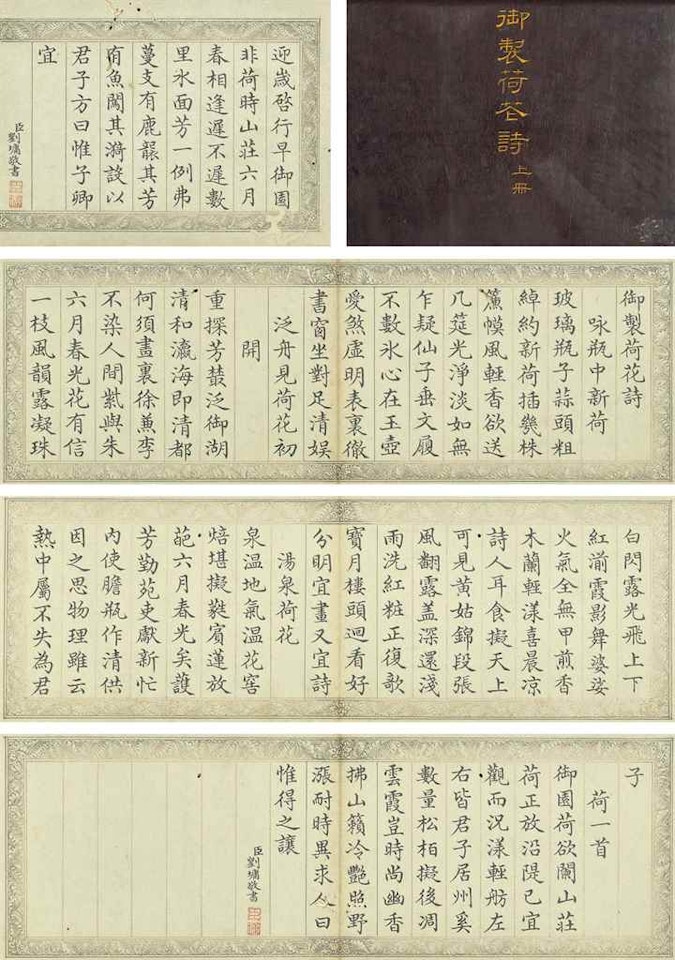 御製荷花詩 上冊
迎歲啓行早御園
非荷時山莊六月
春相逢遲不遲數
里水面芳一例弗
蔓支有鹿䑛其芳
有魚闖其漪設以
君子方曰惟子卿
宜
臣劉墉敬書
御製荷花詩
咏瓶中新荷
玻璃瓶子蒜頭粗
綽約新荷插幾株
簾幙風輕香欲送
几筵光淨淡如無
乍疑仙子垂文履
不數氷心在玉壺
愛煞虛明表裏徹
書窗坐對足清娱
泛舟見荷花初
開
重探芳蕤泛御湖
清和瀛海即清都
何須畫裏徐兼李
不染人間紫與朱
六月春光花有信
一枝風韻露凝珠
白閃露光飛上下
紅湔霞影舞婆娑
火氣全無甲煎香
木蘭輕漾喜晨凉
詩人耳食擬天上
可見黃姑錦段張
風翻露盖深還淺
雨洗紅粧正復歌
寶月樓頭迴看好
分明宜畫又宜詩
湯泉荷花
泉温地氣温花窖
焙堪擬蕤賓蓮放
葩六月春光矣護
芳勤苑吏獻新忙
內使膽瓶作清供
因之思物理雖云
熱中屬不失為君
子
荷一首
御園荷欲闌山莊
荷正放沿隄已宜
觀而況漾輕舫左
右皆君子居州奚
數量松柏擬後凋
雲霞豈時尚幽香
拂山籟冷艷照野
漲耐時異求人曰
惟得之讓
臣劉墉敬書